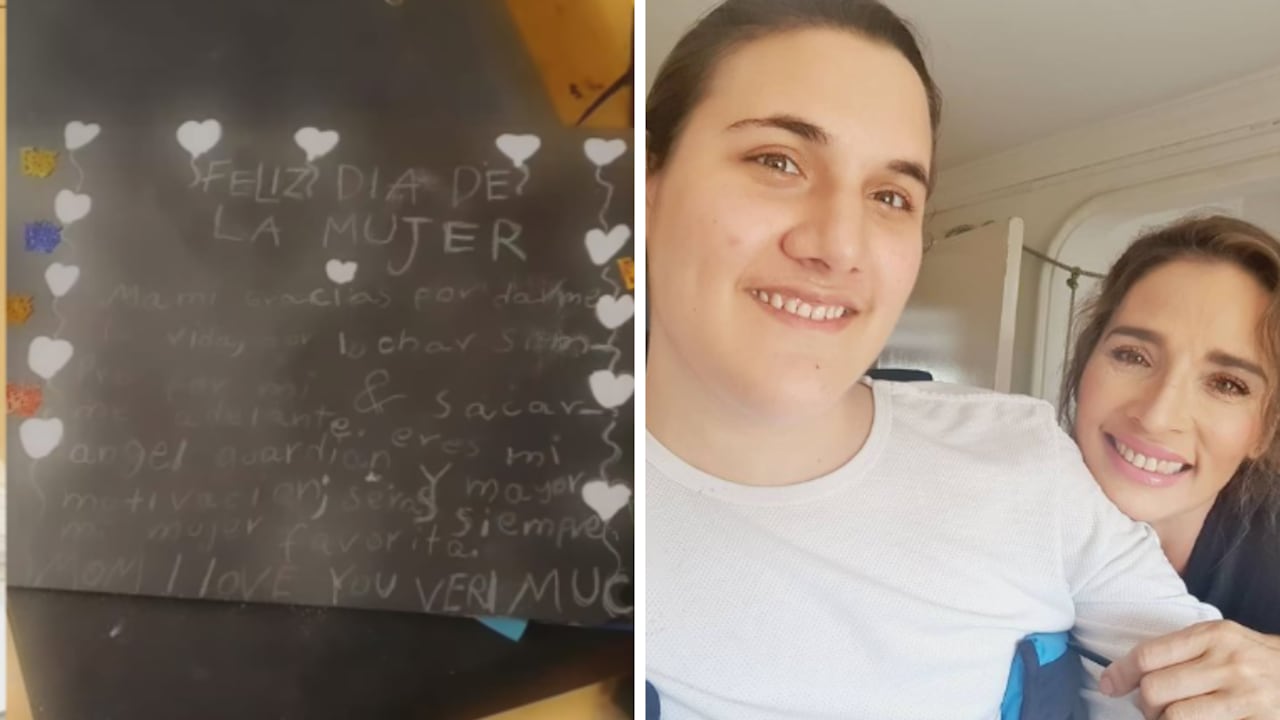 FELIZ DIA DE
LA MUJER
Mami gracias por darme
la vida, por luchar siem-
pre por mi & sacar-
me adelante. eres mi
angel guardian y mayor
motivacion; seras siempre
mi mujer favorita.
MOM I LOVE YOU VERI MUC